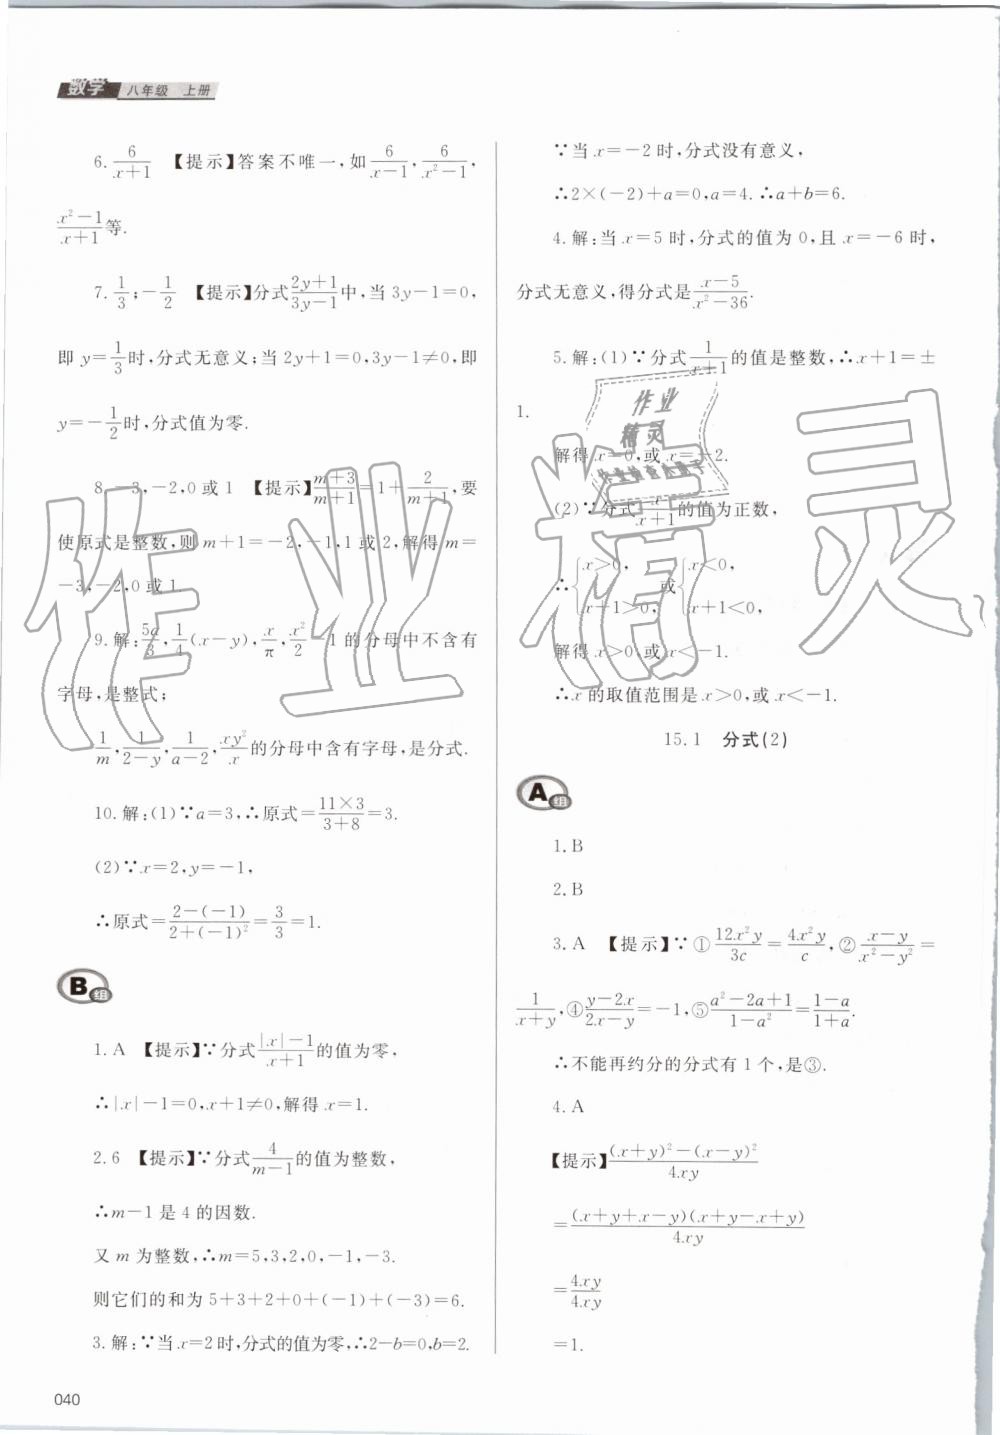 数学 八年级 上册
6. 6/(x+1) 【提示】答案不唯一,如 6/(x-1), 6/(x²-1),
(x²-1)/(x+1) 等.
7. 1/3; -1/2 【提示】分式 (2y+1)/(3y-1) 中,当 3y-1=0,
即 y=1/3 时,分式无意义;当 2y+1=0,3y-1≠0,即
y=-1/2 时,分式值为零.
8. -3,-2,0 或 1 【提示】(m+3)/(m+1)=1+2/(m+1),要
使原式是整数,则 m+1=-2,-1,1 或 2,解得 m=
-3,-2,0 或 1.
9.解: 5a/3, 1/4(x-y), x/π, x²/2-1 的分母中不含有
字母,是整式;
1/m, 1/(2-y), 1/(a-2), xy²/x 的分母中含有字母,是分式.
10.解:(1)∵a=3,∴原式=(11×3)/(3+8)=3.
(2)∵x=2,y=-1,
∴原式=(2-(-1))/(2+(-1)²)=3/3=1.
B组
1.A 【提示】∵分式 (|x|-1)/(x+1) 的值为零,
∴|x|-1=0,x+1≠0,解得 x=1.
2.6 【提示】∵分式 4/(m-1) 的值为整数,
∴m-1 是 4 的因数.
又 m 为整数,∴m=5,3,2,0,-1,-3.
则它们的和为 5+3+2+0+(-1)+(-3)=6.
3.解:∵当 x=2 时,分式的值为零,∴2-b=0,b=2.
040
∵当 x=-2 时,分式没有意义,
∴2×(-2)+a=0,a=4.∴a+b=6.
4.解:当 x=5 时,分式的值为 0,且 x=-6 时,
分式无意义,得分式是 (x-5)/(x²-36).
5.解:(1)∵分式 1/(x+1) 的值是整数,∴x+1=±
1.
解得 x=0,或 x=-2.
(2)∵分式 x/(x+1) 的值为正数,
∴{x>0, x+1>0, 或{x<0, x+1<0,
解得 x>0,或 x<-1.
∴x 的取值范围是 x>0,或 x<-1.
15.1 分式(2)
A组
1.B
2.B
3.A 【提示】∵①12x²y/3c=4x²y/c,②(x-y)/(x²-y²)=
1/(x+y),④(y-2x)/(2x-y)=-1,⑤(a²-2a+1)/(1-a²)=(1-a)/(1+a).
∴不能再约分的分式有 1 个,是③.
4.A
【提示】((x+y)²-(x-y)²)/4xy
=(x+y+x-y)(x+y-x+y)/4xy
=4xy/4xy
=1.
作业精灵
作业
精灵